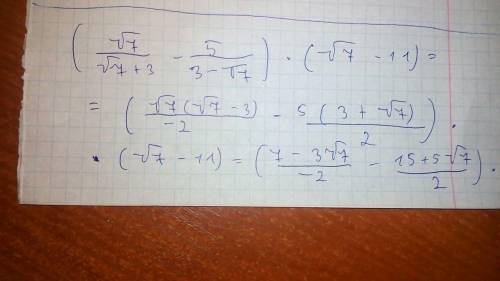 (√7/(√7+3) - 5/(3-√7)) · (√7 - 11) =
= (√7(√7-3)/-2 - 5(3+√7)/2) ·
· (√7 - 11) = ((7-3√7)/-2 - (15+5√7)/2) ·